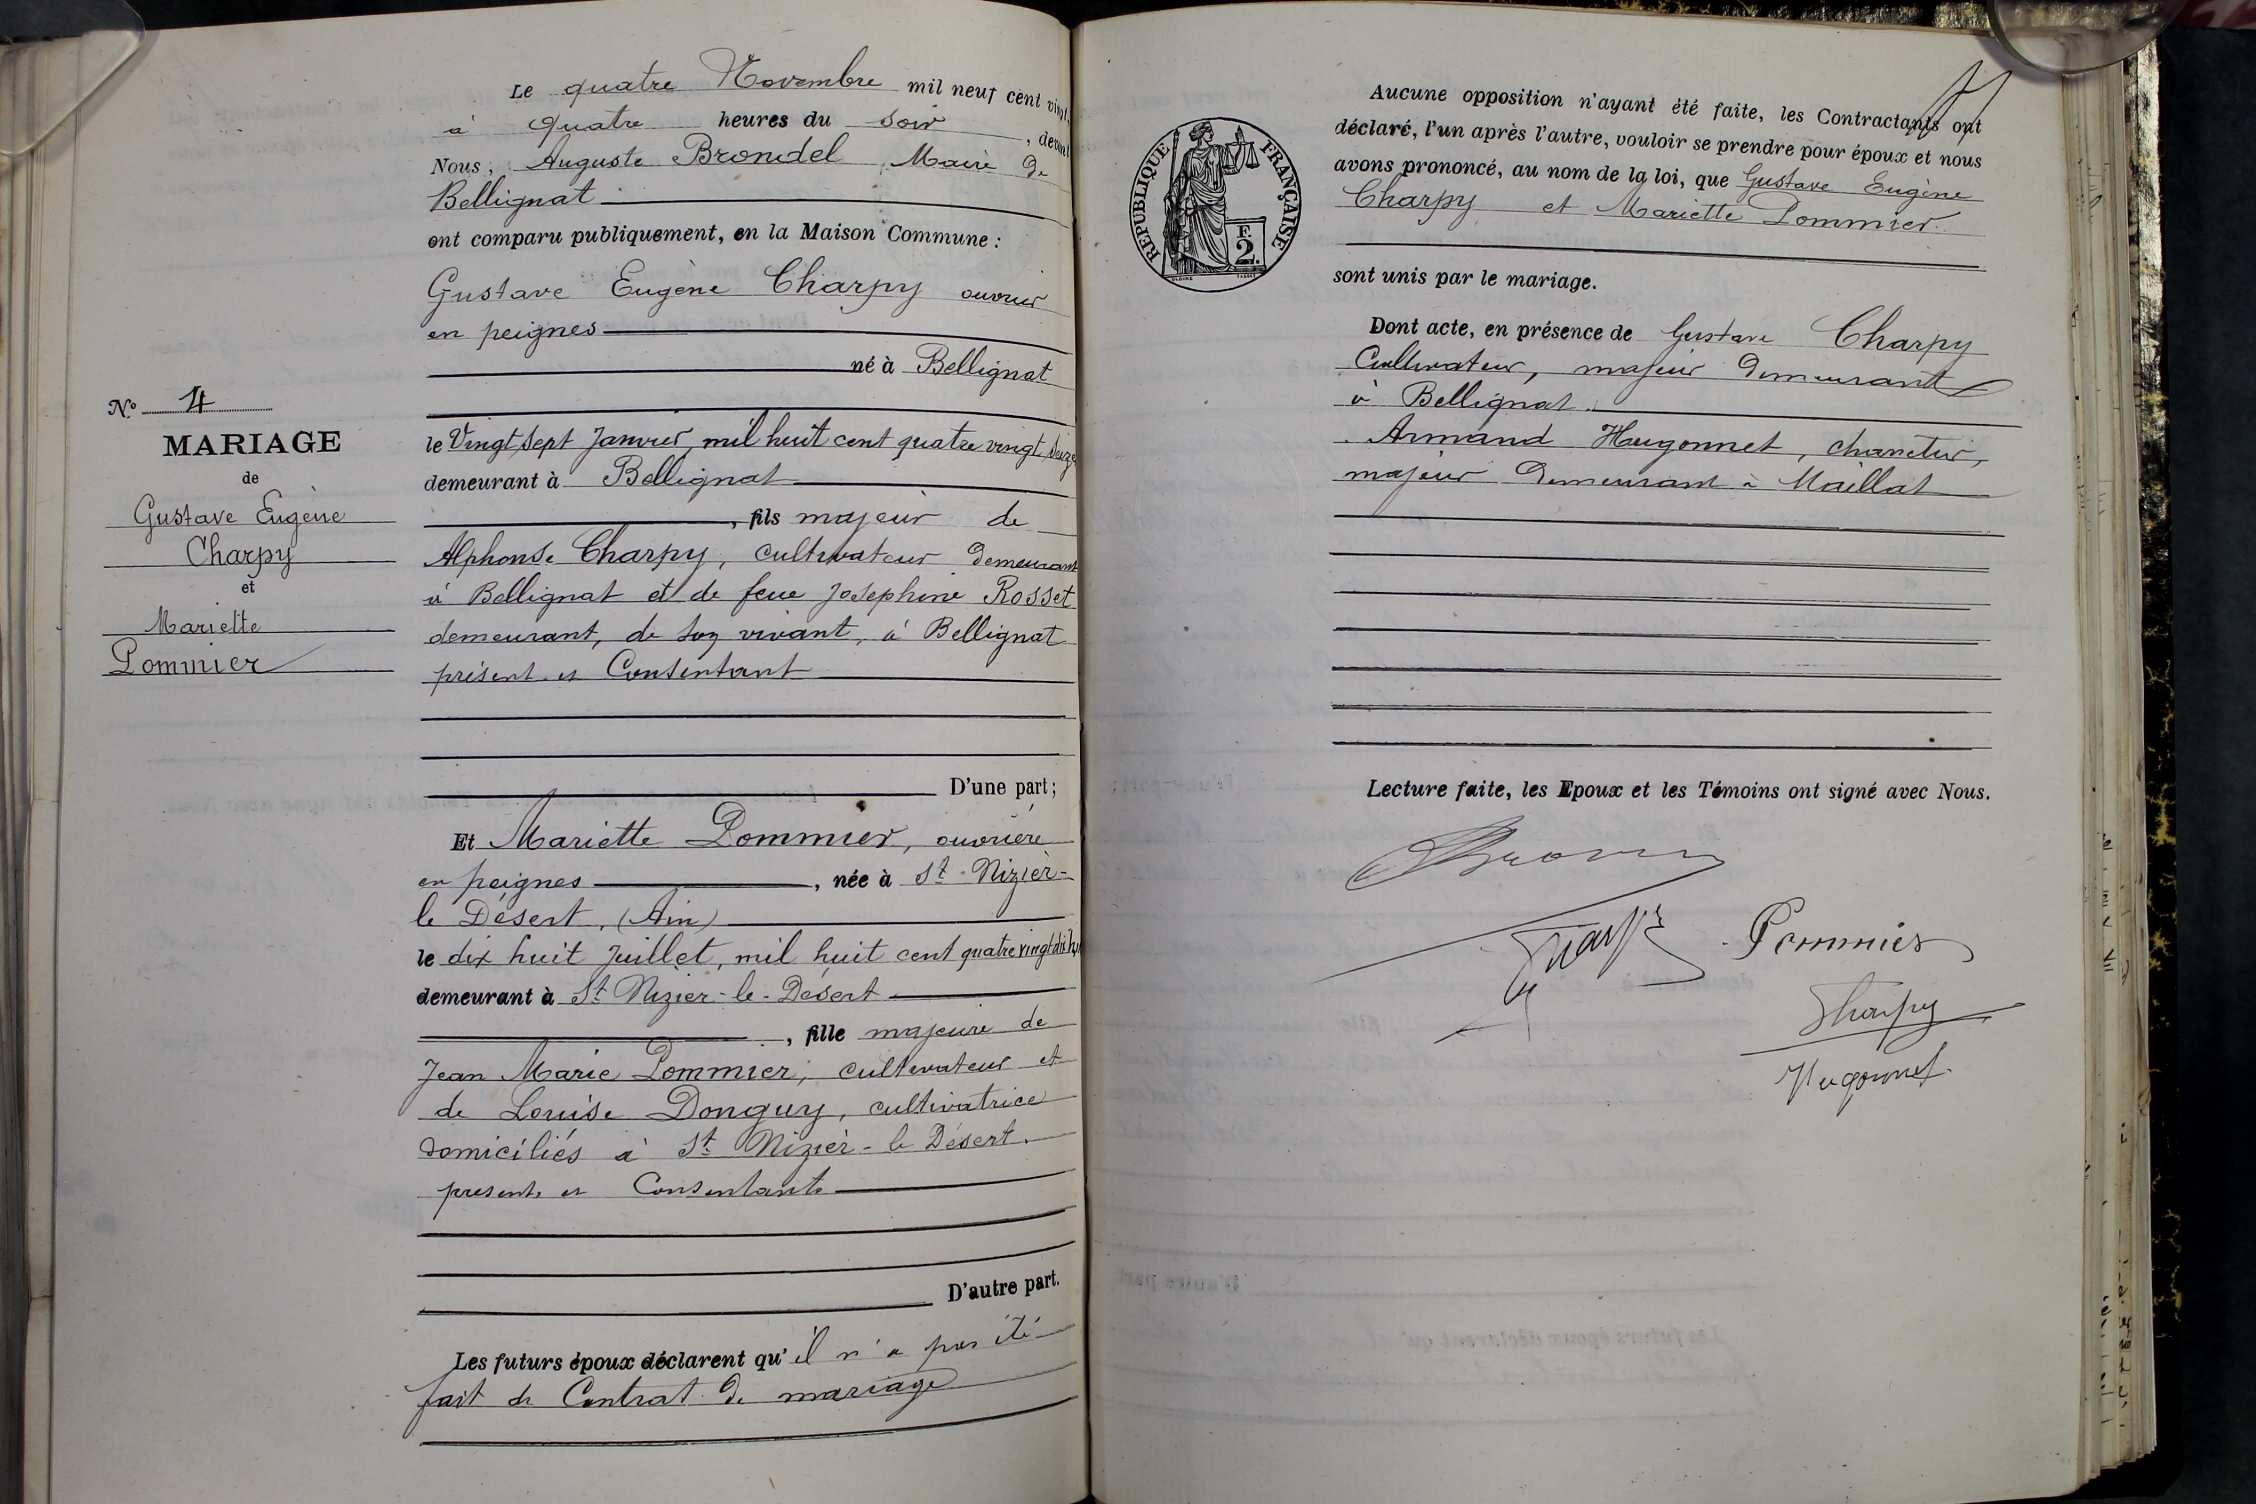 Le quatre Novembre mil neuf cent vingt,
à quatre heures du soir, devant
Nous, Auguste Brondel, Maire de
Bellignat
ont comparu publiquement, en la Maison Commune :
Gustave Eugène Charpy ouvrier
en peignes
né à Bellignat
le Vingt sept Janvier mil huit cent quatre vingt seize
demeurant à Bellignat
, fils majeur de
Alphonse Charpy, cultivateur demeurant
à Bellignat et de feue Joséphine Rosset
demeurant, de son vivant, à Bellignat
présent et Consentant
D'une part ;
Et Mariette Pommier, ouvrière
en peignes, née à St Nizier-
le Désert. (Ain)
le dix huit Juillet, mil huit cent quatre vingt dix hu
demeurant à St Nizier-le-Désert
, fille majeure de
Jean Marie Pommier, cultivateur et
de Louise Donguy, cultivatrice
domiciliés à St Nizier-le Désert.
présents et Consentants
D'autre part.
Les futurs époux déclarent qu'il n'a pas été
fait de Contrat de mariage
N° 4
MARIAGE
de
Gustave Eugène
Charpy
et
Mariette
Pommier
RÉPUBLIQUE FRANÇAISE
F.
2.
Aucune opposition n'ayant été faite, les Contractants ont
déclaré, l'un après l'autre, vouloir se prendre pour époux et nous
avons prononcé, au nom de la loi, que Gustave Eugène
Charpy et Mariette Pommier.
sont unis par le mariage.
Dont acte, en présence de Gustave Charpy
Cultivateur, majeur demeurant
à Bellignat.
Armand Hugonnet,
majeur demeurant à Maillat
Lecture faite, les Epoux et les Témoins ont signé avec Nous.
Pommier
Charpy
Hugonnet